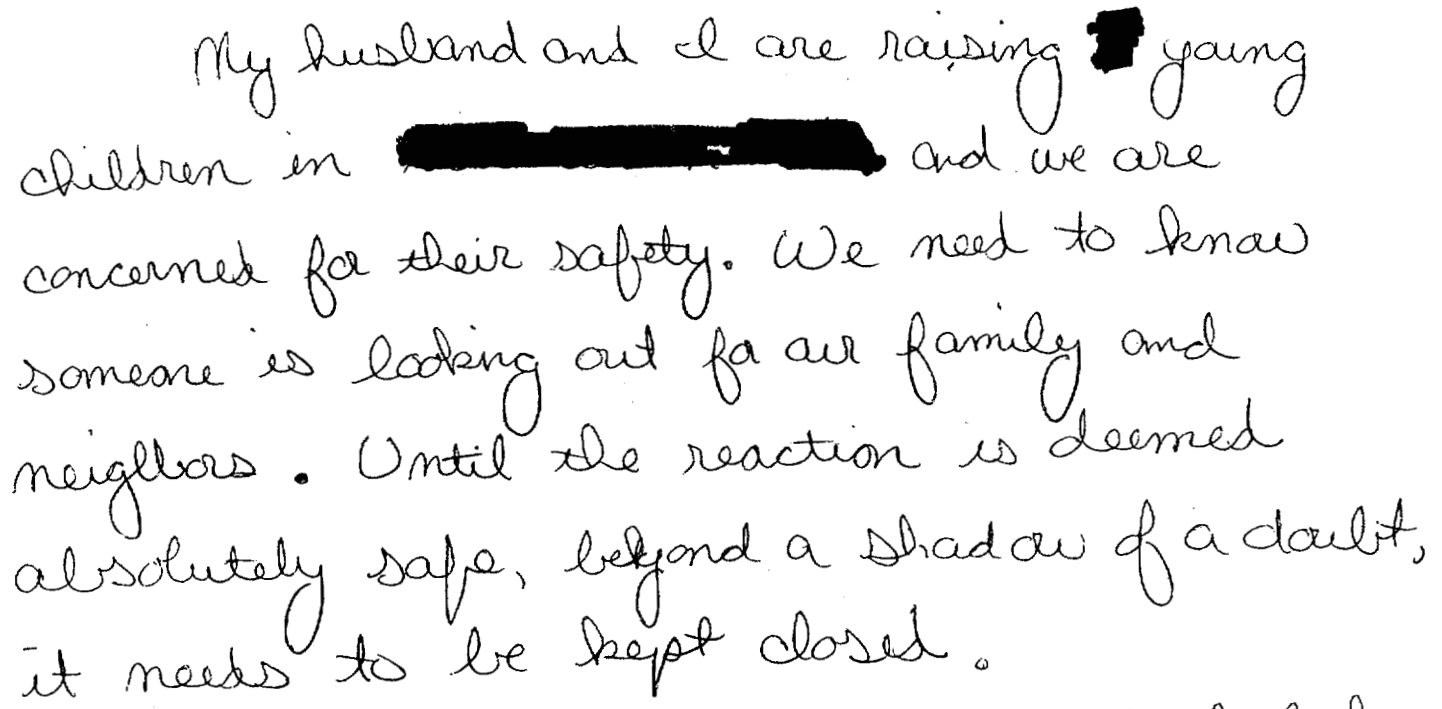 My husband and I are raising young
children in and we are
concerned for their safety. We need to know
someone is looking out for our family and
neighbors. Until the reaction is deemed
absolutely safe, beyond a shadow of a doubt,
it needs to be kept closed.